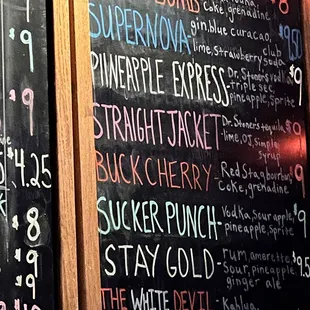 coke, grenadine
8
9
SUPERNOVA
gin, blue curacao,
lime, strawberry
club
soda
9.50
PINEAPPLE EXPRESS
-Dr. Stoner's
-triple sec,
pineapple, Sprite
$9
9
STRAIGHTJACKET
-Dr. Stoner's tequila,
-lime, OJ, simple
syrup
$9
$4.25
BUCKCHERRY-
Red Stag bourbon,
coke, grenadine
9
SUCKER PUNCH-
Vodka, sour apple,
pineapple, Sprite
$9
$8
STAY GOLD-
rum, amaretto
sour, pineapple
ginger ale
$9.5
$9
THE WHITE DEVIL
Kahlua
$9